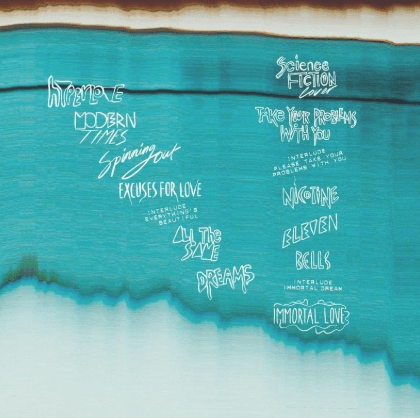 HYPERLOVE
MODERN
TIMES
Spinning out
EXCUSES FOR LOVE
INTERLUDE
EVERYTHING'S
BEAUTIFUL
ALL THE
SAME
DREAMS
Science
FICTION
Lover
TAKE YOUR PROBLEMS
WITH YOU
INTERLUDE
PLEASE TAKE YOUR
PROBLEMS WITH YOU
NICOTINE
ELEVEN
BELLS
INTERLUDE
IMMORTAL DREAM
IMMORTAL LOVE